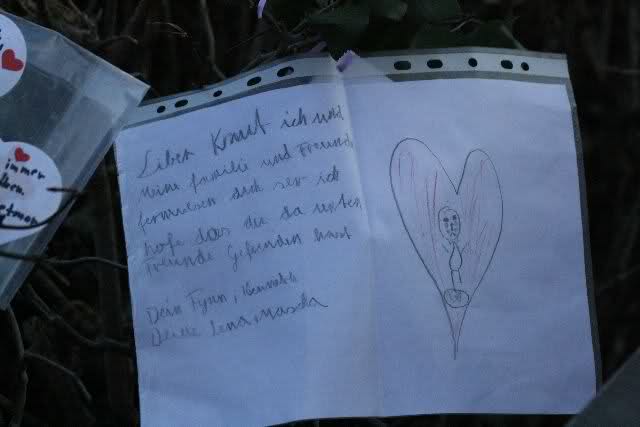 immer
Liber Knut ich und
meine familie und Freunde
fermissen dich ser ich
hofe das du da unten
Freunde Gefunden hast
Dein Fynn,
Lena, Mascha